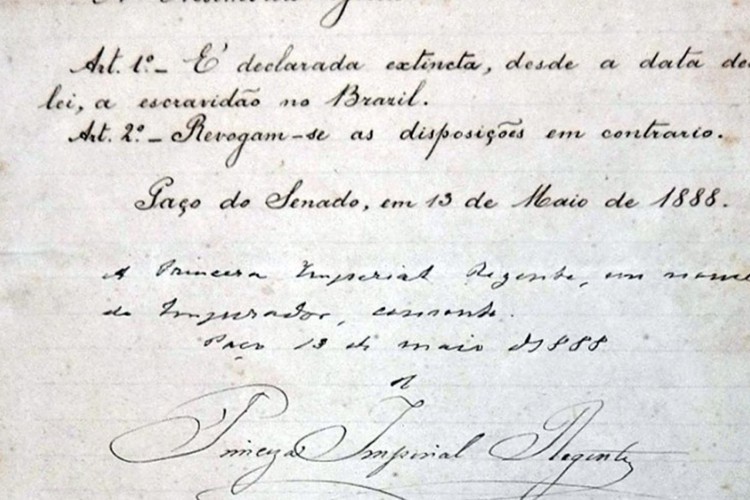 Art. 1º_ E' declarada extincta, desde a data
lei, a escravidão no Brazil.
Art. 2º_ Revogam-se as disposições em contrario.
Paço do Senado, em 13 de Maio de 1888.
A Princeza Imperial Regente, em nome
do Imperador, consente.
Paço 13 de maio de 1888
A
Princeza Imperial Regente